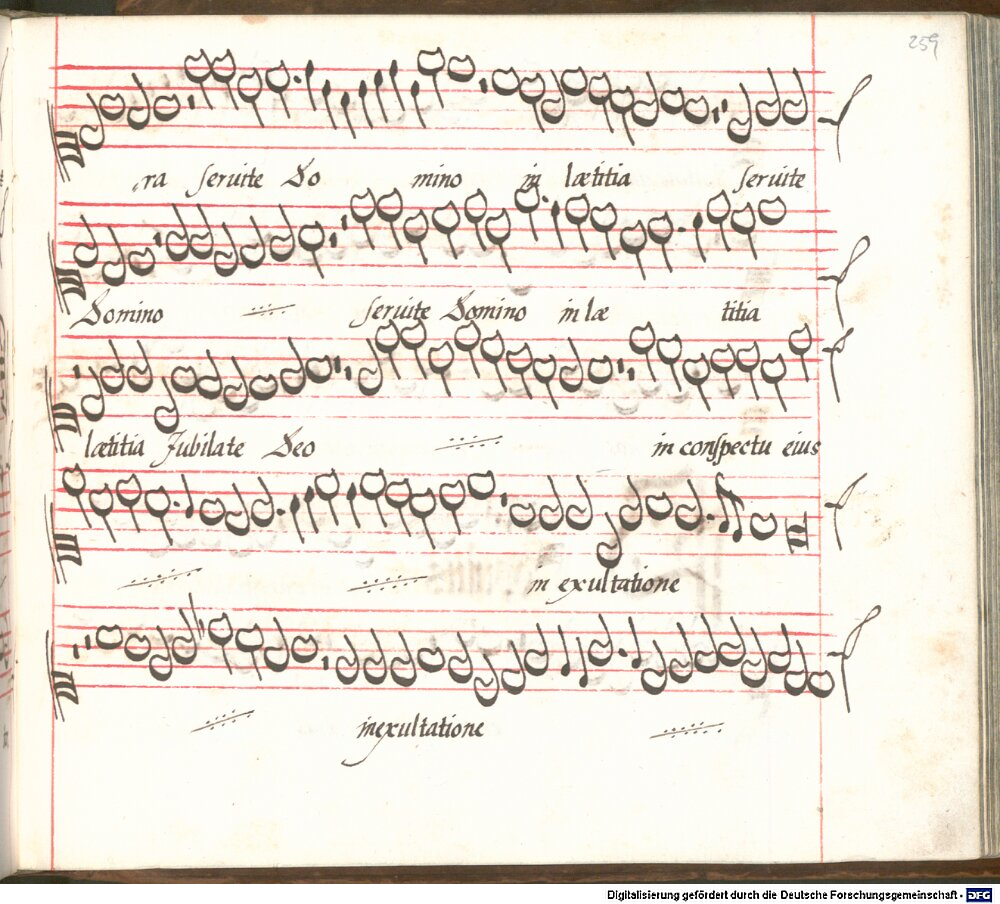 259
ra seruite Do mino in lætitia seruite
Domino seruite Domino in læ titia
lætitia Jubilate Deo in conspectu eius
in exultatione
in exultatione
Digitalisierung gefördert durch die Deutsche Forschungsgemeinschaft - DFG